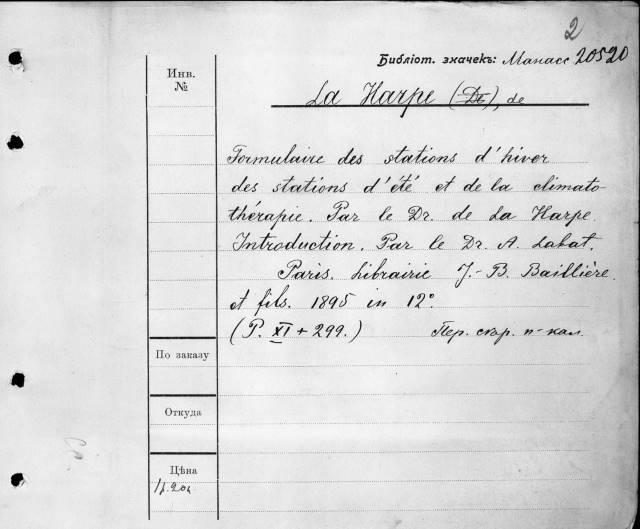 2
Библіот. значекъ: Манасс 20520
Инв.
№
La Harpe (Dr), de
Formulaire des stations d'hiver
des stations d'été et de la climato-
thérapie. Par le Dr. de La Harpe.
Introduction. Par le Dr. A. Labat.
Paris. Librairie J.-B. Baillière
et fils. 1895 in 12°
(P. XI + 299.)
По заказу
Откуда
Цѣна